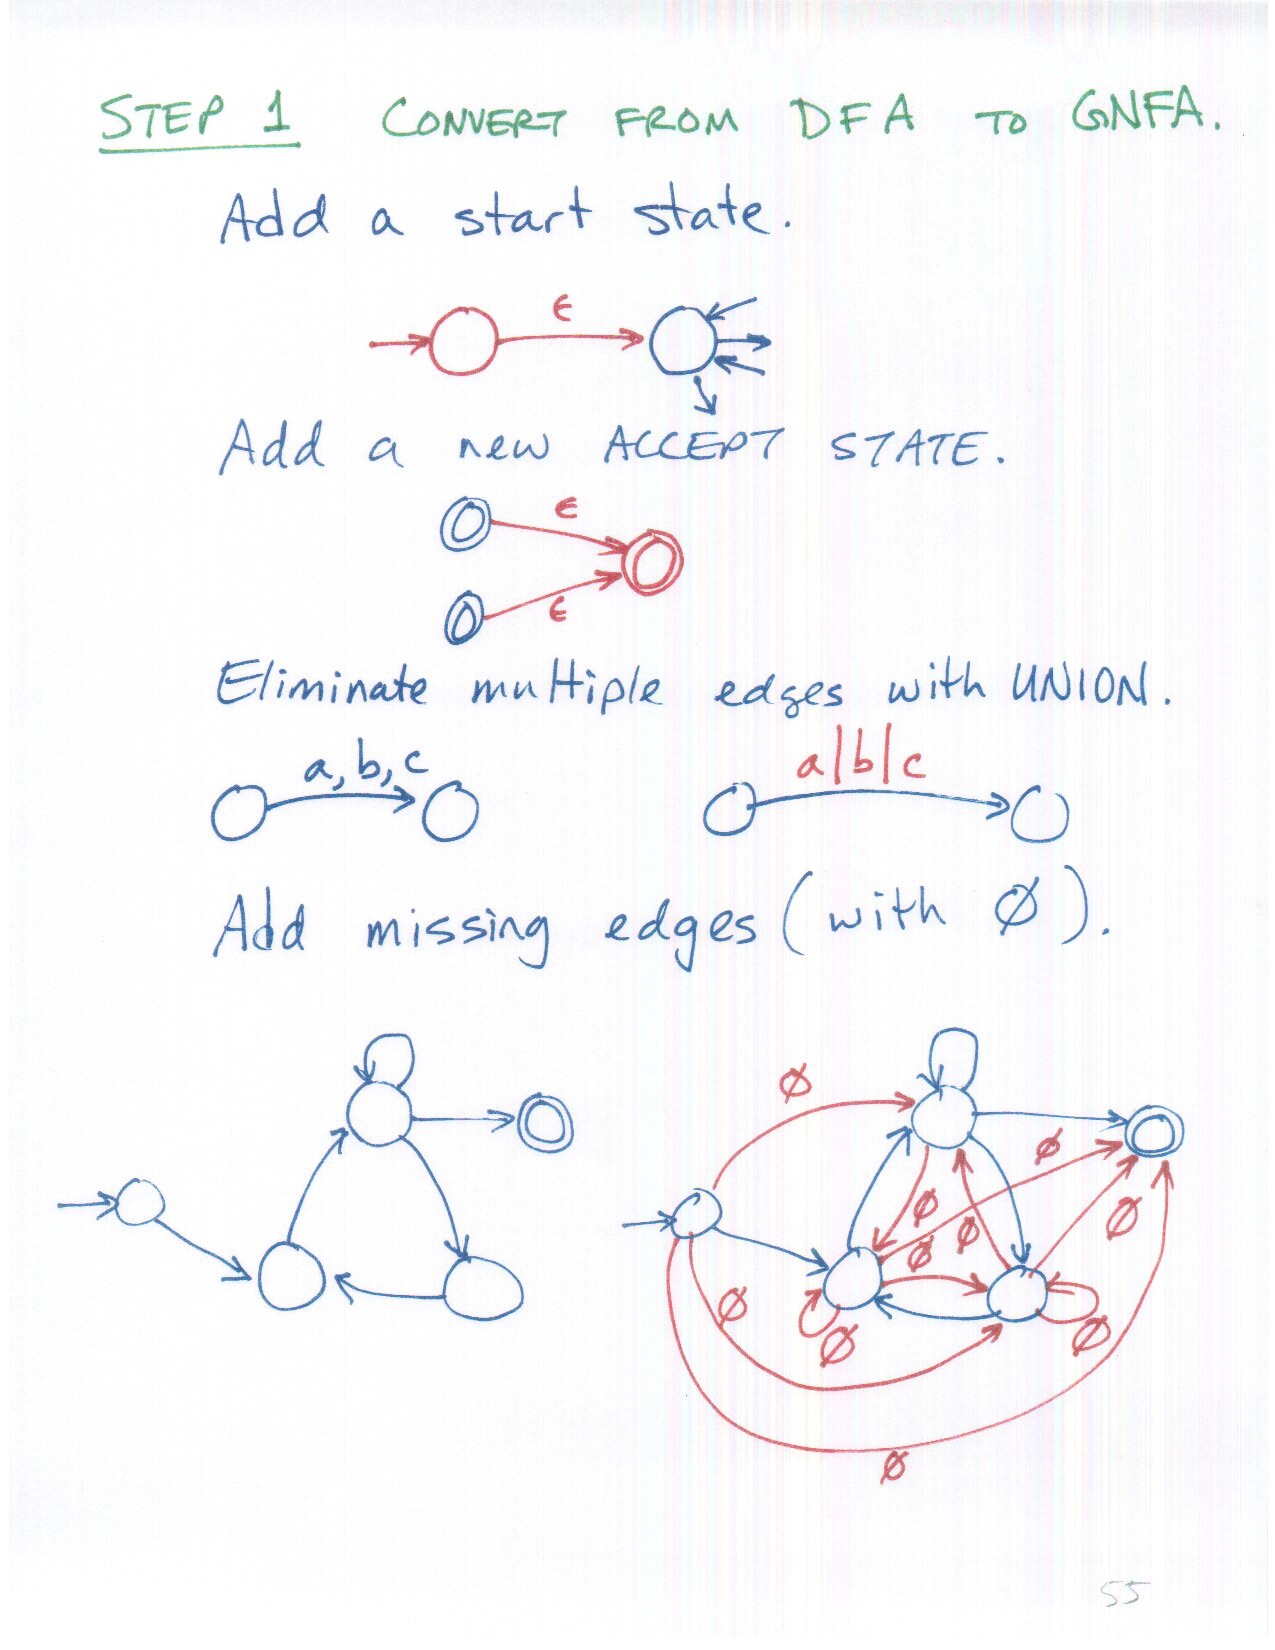 STEP 1 CONVERT FROM DFA TO GNFA.
Add a start state.
ϵ
Add a new ACCEPT STATE.
ϵ
ϵ
Eliminate multiple edges with UNION.
a, b, c a|b|c
Add missing edges (with Ø).
Ø
Ø
Ø
Ø
Ø
Ø
Ø
Ø
Ø
Ø
55